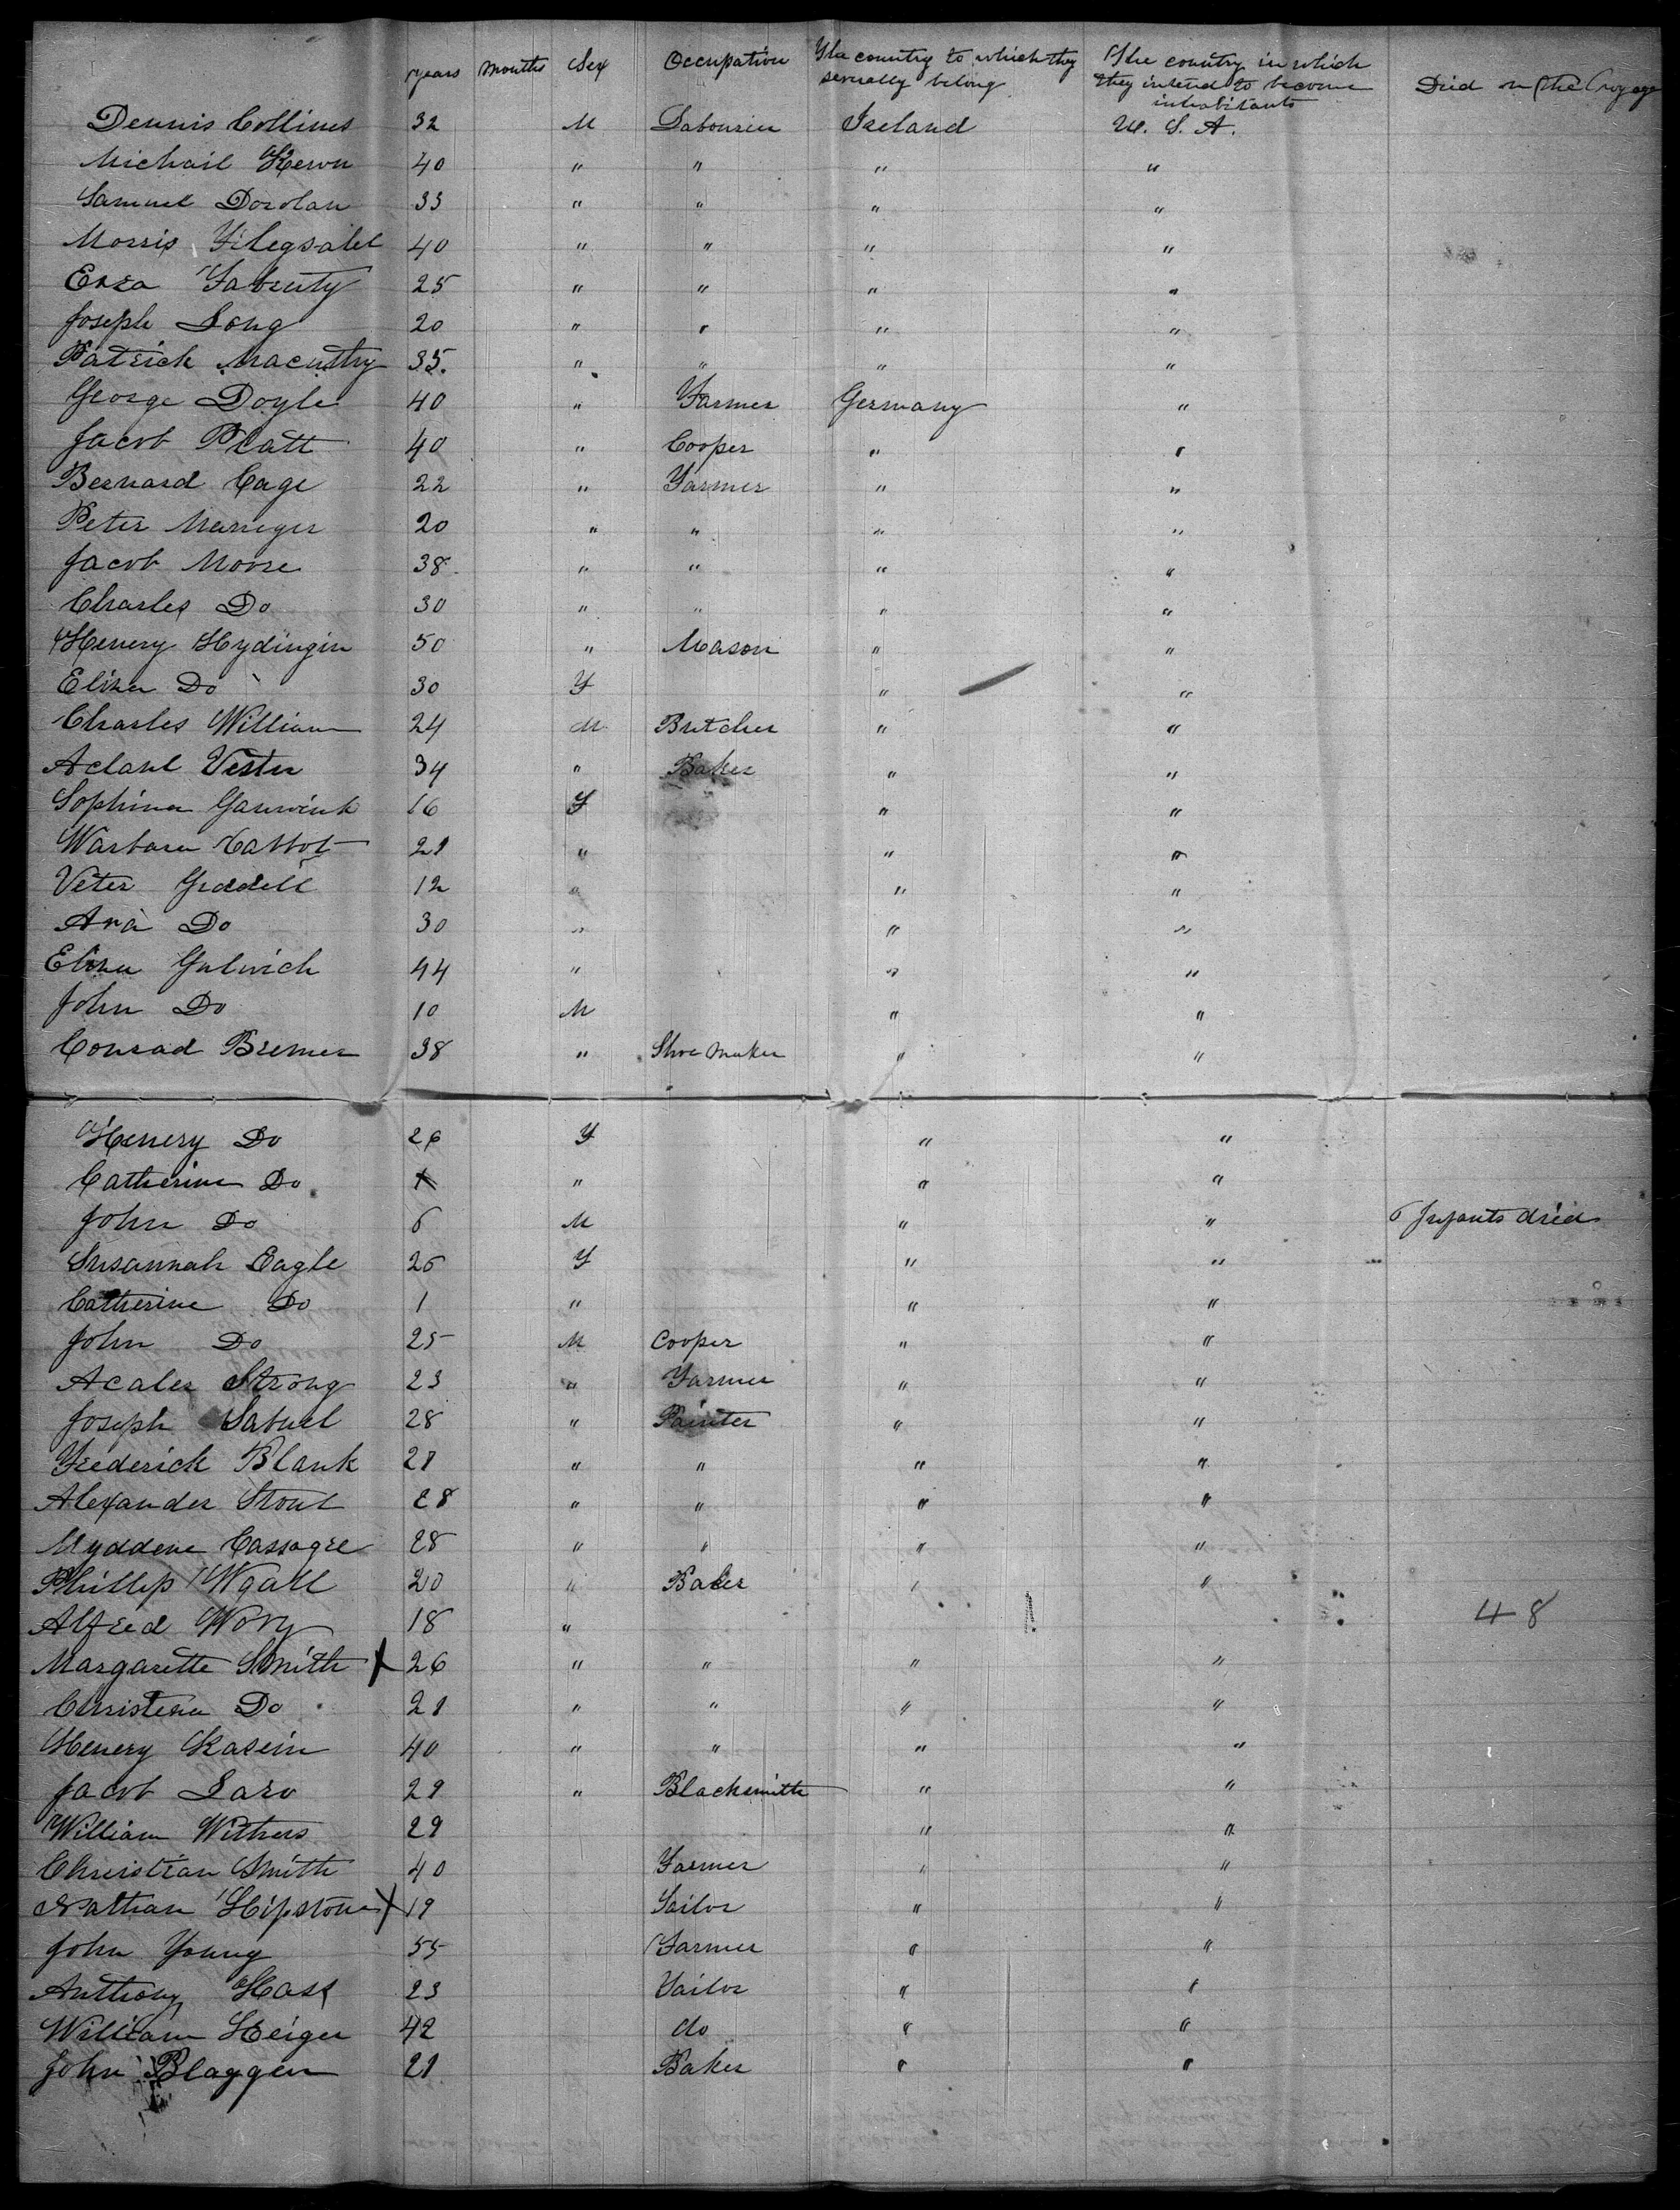 years months Sex Occupation The country to which they severally belong The country in which they intend to become inhabitants Died on the Voyage
Dennis Collines 32 M Labourier Ireland U. S. A.
Michail Kerwn 40 " " " "
Samuel Dorolan 33 " " " "
Morris 40 " " " "
25 " " " "
Joseph Long 20 " " " "
Patrick 35. " " " "
George Doyle 40 " Farmer Germany "
Jacob Platt 40 " Cooper " "
Bernard Cage 22 " Farmer " "
Peter 20 " " " "
Jacob Moore 38 " " " "
Charles Do 30 " " " "
Henery Hydingin 50 " Mason " "
Eliza Do 30 F " "
Charles William 24 M Butcher " "
Vester 34 " Baker " "
Sophina 16 F " "
Warbara " " "
Veter Griddell 12 " " "
Ana Do 30 " " "
Eliza Gulwich 44 " " "
John Do 10 M " "
Conrad Bremer 38 " Shoe maker " "
Henery Do 26 F " "
Catherine Do " " "
John Do 6 M " " 6 Infants died
Susannah Eagle 26 F " "
Catherine Do 1 " " "
John Do 25 M Cooper " "
Acaler Strong 23 " Farmer " "
Joseph Sabuel 28 " Painter " "
Frederick Blank 28 " " " "
Alexander Stout 28 " " " "
Myddene Cassagre 28 " " " "
Phillip Wgall 20 " Baker " "
Alfred Wory 18 " 48
Margarette Smith X 26 " " " "
Christena Do 28 " " " "
Henery Kasein 40 " " " "
Jacob Laro 29 " Blacksmith " "
William Withers 29 " "
Christian Smith 40 Farmer " "
Nathan Hipstone X 19 Tailor " "
John Young 55 Farmer " "
Anthony Hass 23 Tailor " "
William Heiger 42 do " "
John Blaggen 28 Baker " "